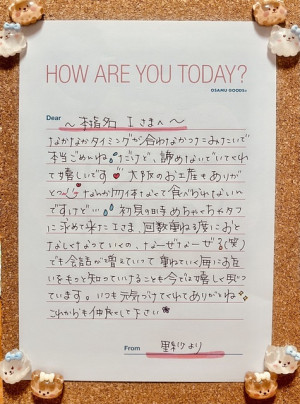 HOW ARE YOU TODAY?
OSAMU GOODS®
Dear
～本指名 Iさまへ～
なかなかタイミングが合わなかったみたいで
本当ごめんね だけど、諦めないでいてくれ
て嬉しいです 大阪のお土産もありが
とう なんか勿体なくて食べられないん
ですけど… 初見の時めちゃくちゃタフ
に求めて来たIさま、回数重ねる度におと
なしくなっていくの、なーぜなーぜ?(笑)
でも会話が増えていって重ねていく毎にお互
いをもっと知っていけることも今では嬉しく思っ
ています。いつも元気づけてくれてありがとね
これからも仲良くして下さい
From
より